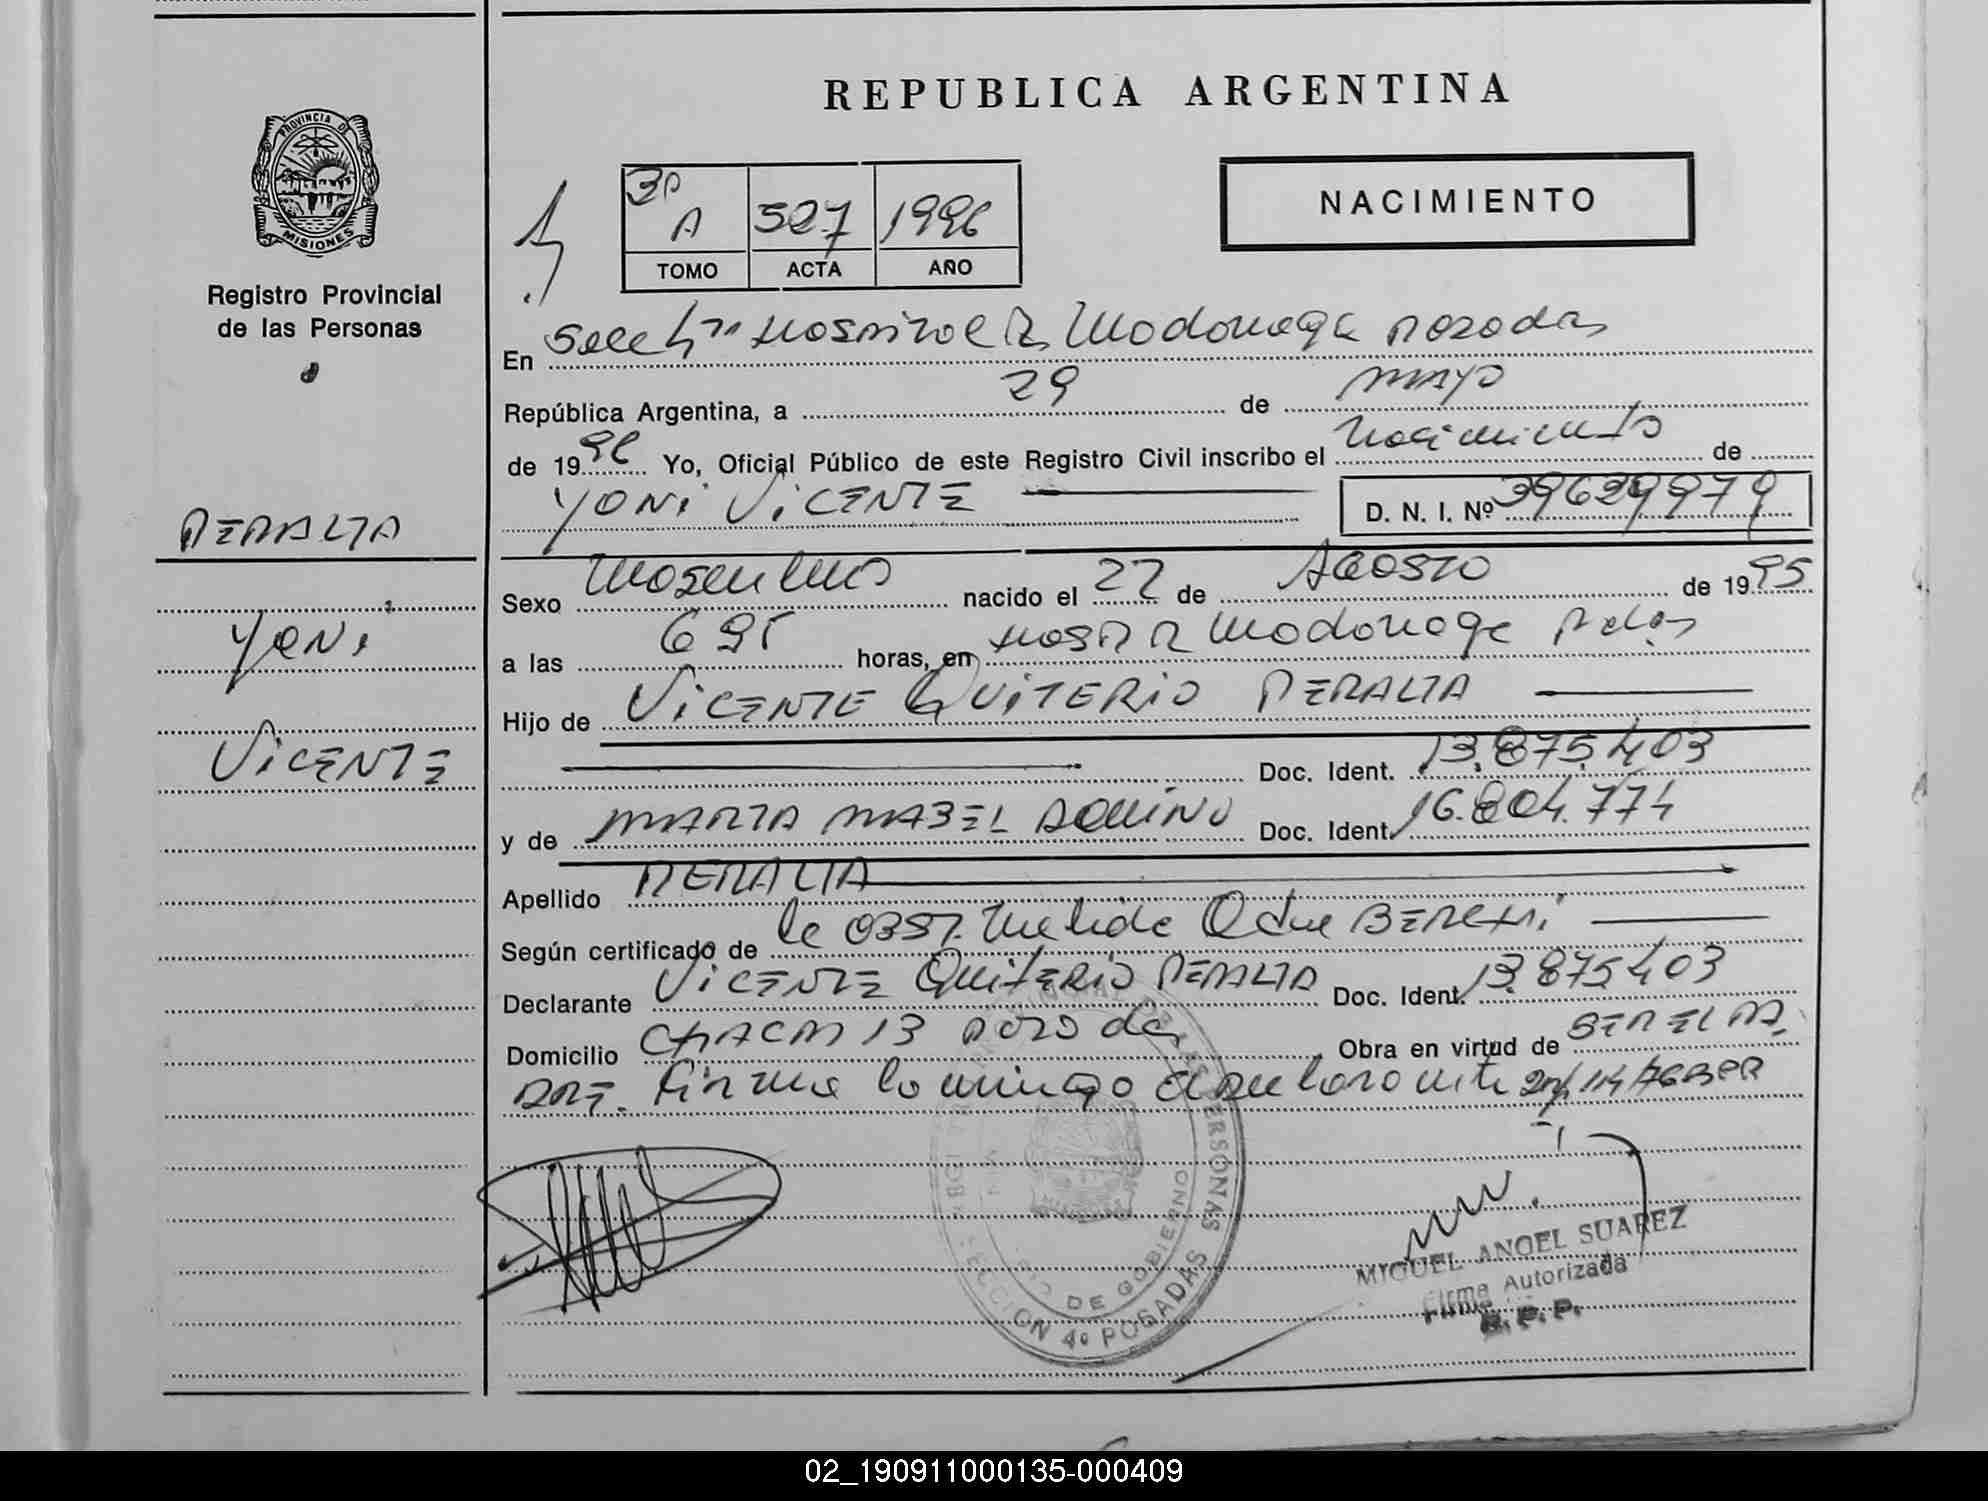 REPUBLICA ARGENTINA
PROVINCIA DE
MISIONES
Registro Provincial
de las Personas
3º
A 527 1996
TOMO ACTA AÑO
NACIMIENTO
En Hospital R. Madariaga Posadas
República Argentina, a 29 de mayo
de 1996 Yo, Oficial Público de este Registro Civil inscribo el Nacimiento de
YONI VICENTE D. N. I. Nº 39629979
PERALTA
YONI
VICENTE
Sexo Masculino nacido el 22 de AGOSTO de 1995
a las 6 horas, en Hosp R Madariaga Pdas
Hijo de VICENTE QUITERIO PERALTA
Doc. Ident. 13.875.403
y de MARTA MABEL AQUINO Doc. Ident. 16.804.774
Apellido PERALTA
Según certificado de la OBST.
Declarante VICENTE QUITERIO PERALTA Doc. Ident. 13.875403
Domicilio CHACRA 13 Posadas Obra en virtud de SER EL PA
DRE. Firma conmigo el declarante
REGISTRO PROVINCIAL DE LAS PERSONAS
DE GOBIERNO
SECCION 4º POSADAS
MIGUEL ANGEL SUAREZ
Firma Autorizada
R. P. P.
02_190911000135-000409